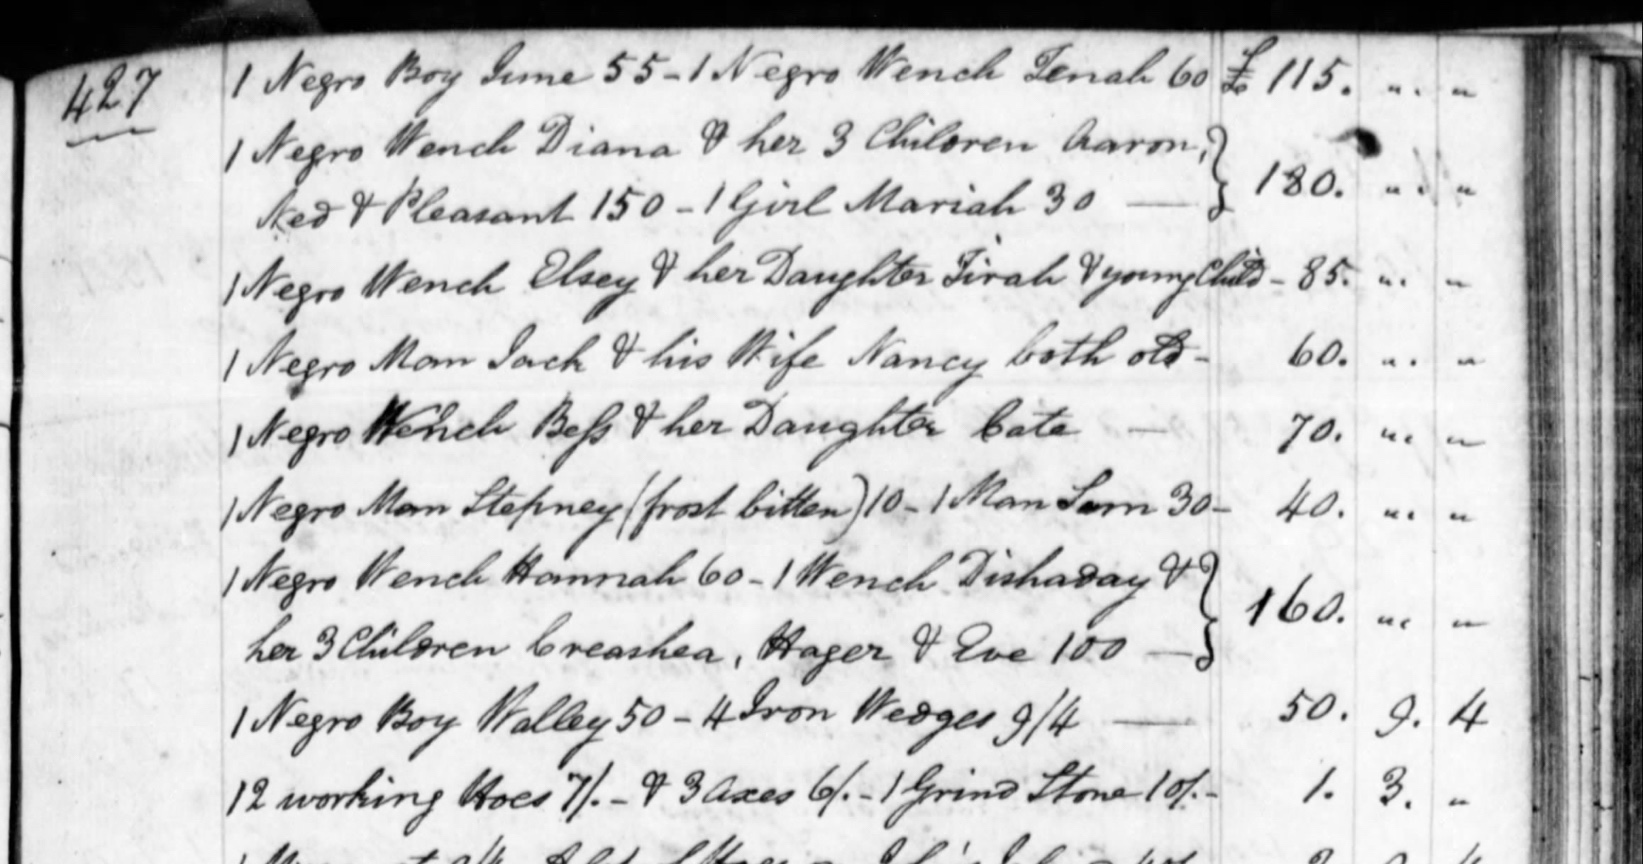 427
1 Negro Boy June 55 - 1 Negro Wench Tenah 60 £ 115. " . "
1 Negro Wench Diana & her 3 Children Aaron,
Ned & Pleasant 150 - 1 Girl Mariah 30 — 180. " . "
1 Negro Wench Elsey & her Daughter Tirah & young Child - 85. " . "
1 Negro Man Jack & his Wife Nancy both old - 60. " . "
1 Negro Wench Bess & her Daughter Cate — 70. " . "
1 Negro Man Stepney (frost bitten) 10 - 1 Man Sam 30 - 40. " . "
1 Negro Wench Hannah 60 - 1 Wench Dishaday &
her 3 Children Creashea, Hager & Eve 100 — 160. " . "
1 Negro Boy Walley 50 - 4 Iron Wedges 9/4 — 50. 9. 4
12 working Hoes 7/. - & 3 Axes 6/. - 1 Grind Stone 10/. - 1. 3. "